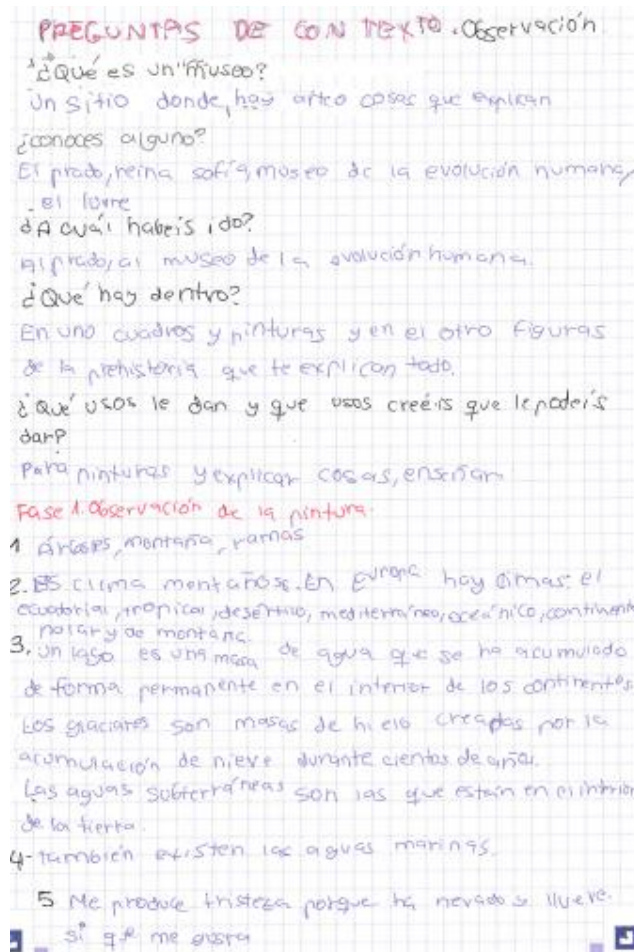 PREGUNTAS DE CONTEXTO. Observación
¿Qué es un "museo?
Un sitio donde hay arte o cosas que explican
¿conoces alguno?
El prado, reina sofía, museo de la evolución humana,
el lovre
¿A cuál habeis ido?
Al prado, al museo de la evolución humana.
¿Qué hay dentro?
En uno cuadros y pinturas y en el otro figuras
de la prehistoria que te explican todo.
¿Qué usos le dan y que usos creéis que le podeís
dar?
Para pinturas y explicar cosas, enseñar
Fase 1. Observación de la pintura.
1 Árboles, montaña, ramas
2. Es clima montañoso. En Europa hay climas: el
ecuatorial, tropical, desértico, mediterráneo, oceánico, continental
polar y de montaña.
3. Un lago es una masa de agua que se ha acumulado
de forma permanente en el interior de los continentes
Los glaciares son masas de hielo creadas por la
acumulación de nieve durante cientos de años.
Las aguas subterráneas son las que están en el interior
de la tierra.
4- también existen las aguas marinas.
5 Me produce tristeza porque ha nevado y llueve.
sí que me gusta